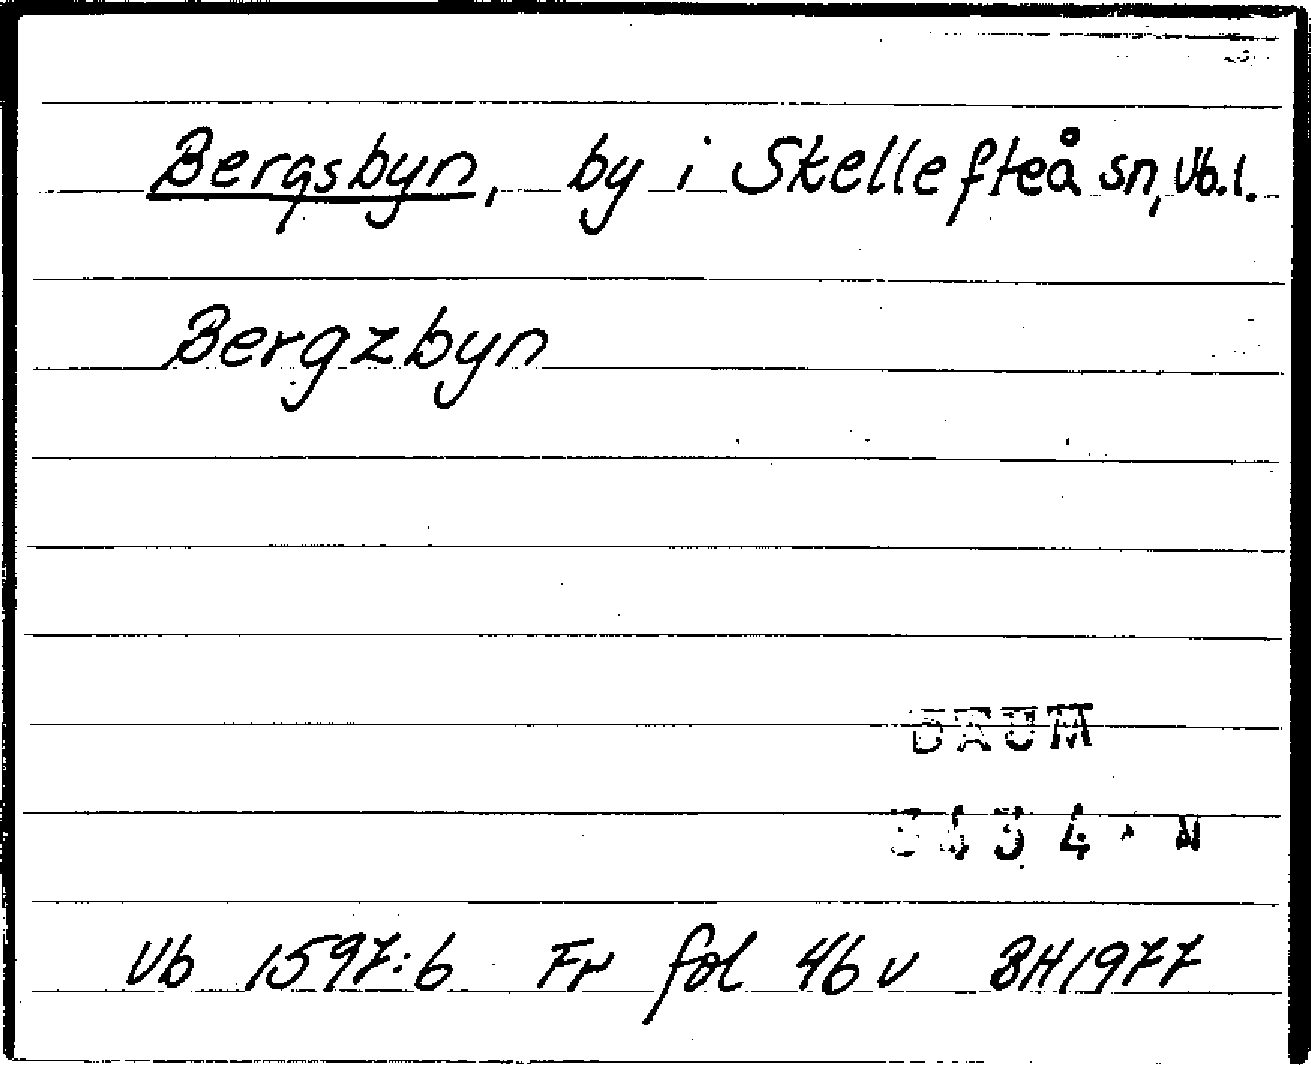 Bergsbyn, by i Skellefteå sn, Vb.l.
Bergzbyn
DAUM
3434 · N
Vb 1597:6 Fr fol 46 v BH 1977